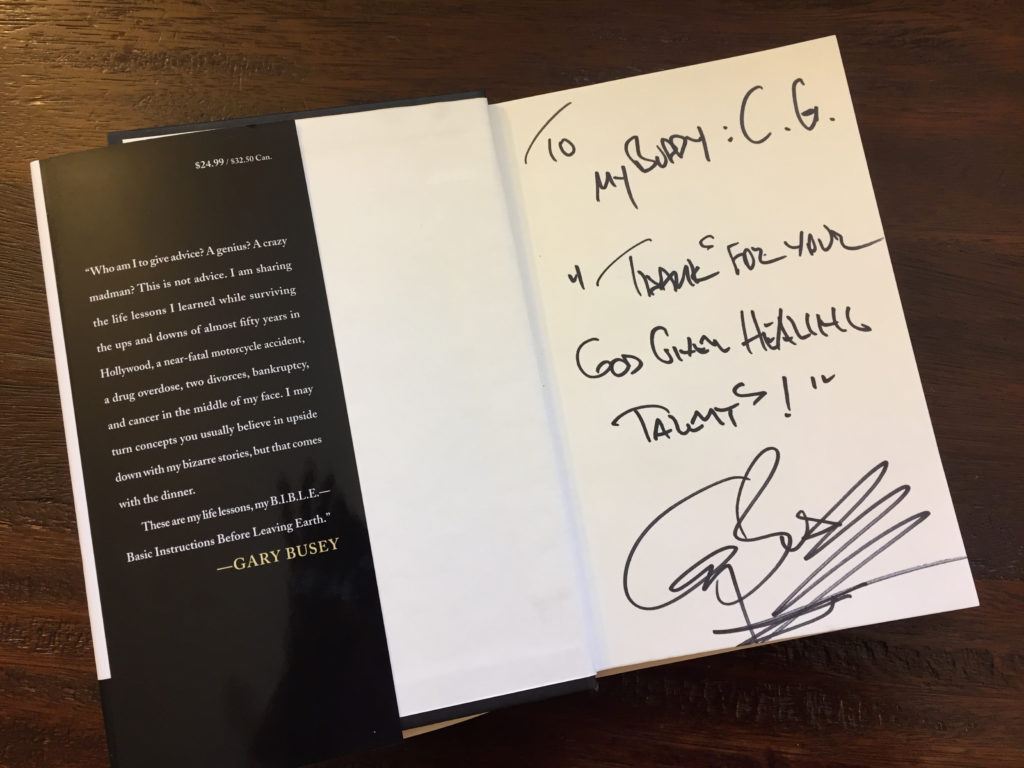 $24.99 / $32.50 Can.
“Who am I to give advice? A genius? A crazy
madman? This is not advice. I am sharing
the life lessons I learned while surviving
the ups and downs of almost fifty years in
Hollywood, a near-fatal motorcycle accident,
a drug overdose, two divorces, bankruptcy,
and cancer in the middle of my face. I may
turn concepts you usually believe in upside
down with my bizarre stories, but that comes
with the dinner.
These are my life lessons, my B.I.B.L.E.—
Basic Instructions Before Leaving Earth.”
—GARY BUSEY
TO
MY BUDDY : C. G.
"THANKS FOR YOUR
GOD GIVEN HEALING
TALENTS! "
Gary Busey